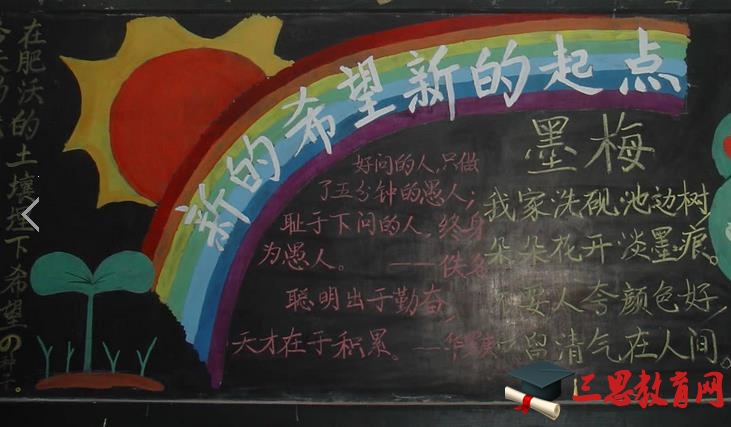 在肥沃的土壤埋下希望の种子。
新的希望新的起点
好问的人,只做
了五分钟的愚人;
耻于下问的人,终身
为愚人。——佚名
聪明出于勤奋,
天才在于积累。——华罗庚
墨梅
我家洗砚池边树
朵朵花开淡墨痕。
不要人夸颜色好,
只留清气在人间。
三思教育网